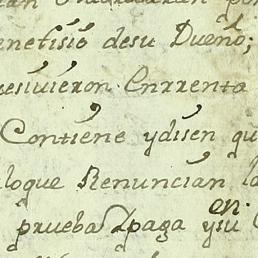 enefisio desu Dueño;
esivieron Enrrenta
Contiene ydisen qu
loque Renuncian la
en
prueba paga ysu